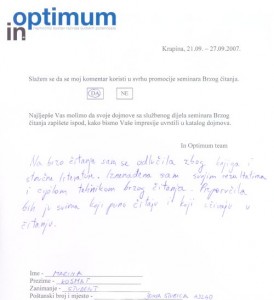 optimum
in
Krapina, 21.09. – 27.09.2007.
Slažem se da se moj komentar koristi u svrhu promocije seminara Brzog čitanja.
DA NE
Najljepše Vas molimo da svoje dojmove sa službenog dijela seminara Brzog
čitanja zapišete ispod, kako bismo Vaše impresije uvrstili u katalog dojmova.
In Optimum team
Na brzo čitanja sam se odlučila zbog knjiga i
stručne literature. Iznenađena sam svojim rezultatima
i cijelom tehnikom brzog čitanja. Preporučila
bih je svima koji puno čitaju i koji uživaju u
čitanju.
Ime - MARINA
Prezime -
Zanimanje - STUDENT
Poštanski broj i mjesto -